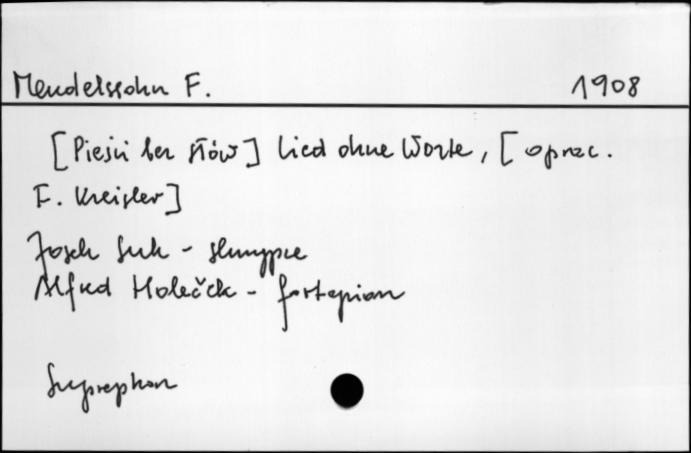 Mendelssohn F. 1908
[Pieśń bez słów] Lied ohne Worte, [oprac.
F. Kreisler]
Josef Suk - skrzypce
Alfred Holeček - fortepian
Supraphon